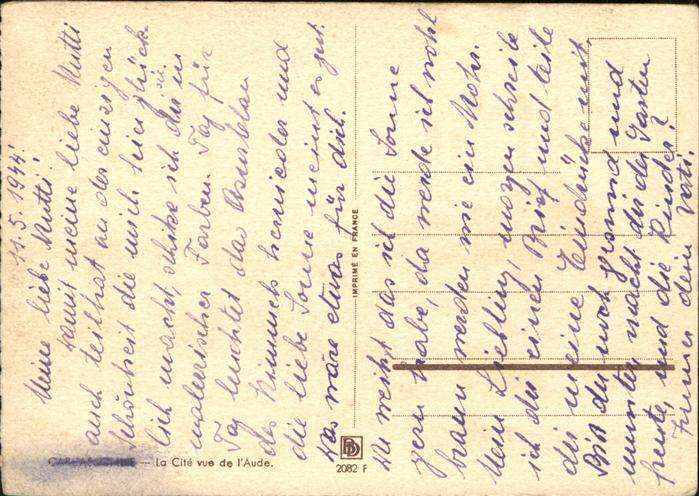 11.5.1944!
Meine liebe Mutti!
Damit meine liebe Mutti
auch teilhat an der einzigen
Schönheit die mich hier glück-
lich macht, schike ich dir in
malerischen Farben. Tag für
Tag leuchtet das Azurblau
des Himmels hernieder und
die liebe Sonne meint es gut.
Das wäre etwas für dich.
Du weißt das ich die Sonne
gern habe, da werde ich wohl
braun werden wie ein Mohr.
Mein Liebling, morgen schreibe
ich dir einen Brief und teile
dir meine Eindrücke mit,
Bist du noch gesund und
munter, macht dir der Garten
freude und die Kinder?
Immer dein Vati.
CARCASSONNE — La Cité vue de l'Aude.
IMPRIMÉ EN FRANCE
2082 F